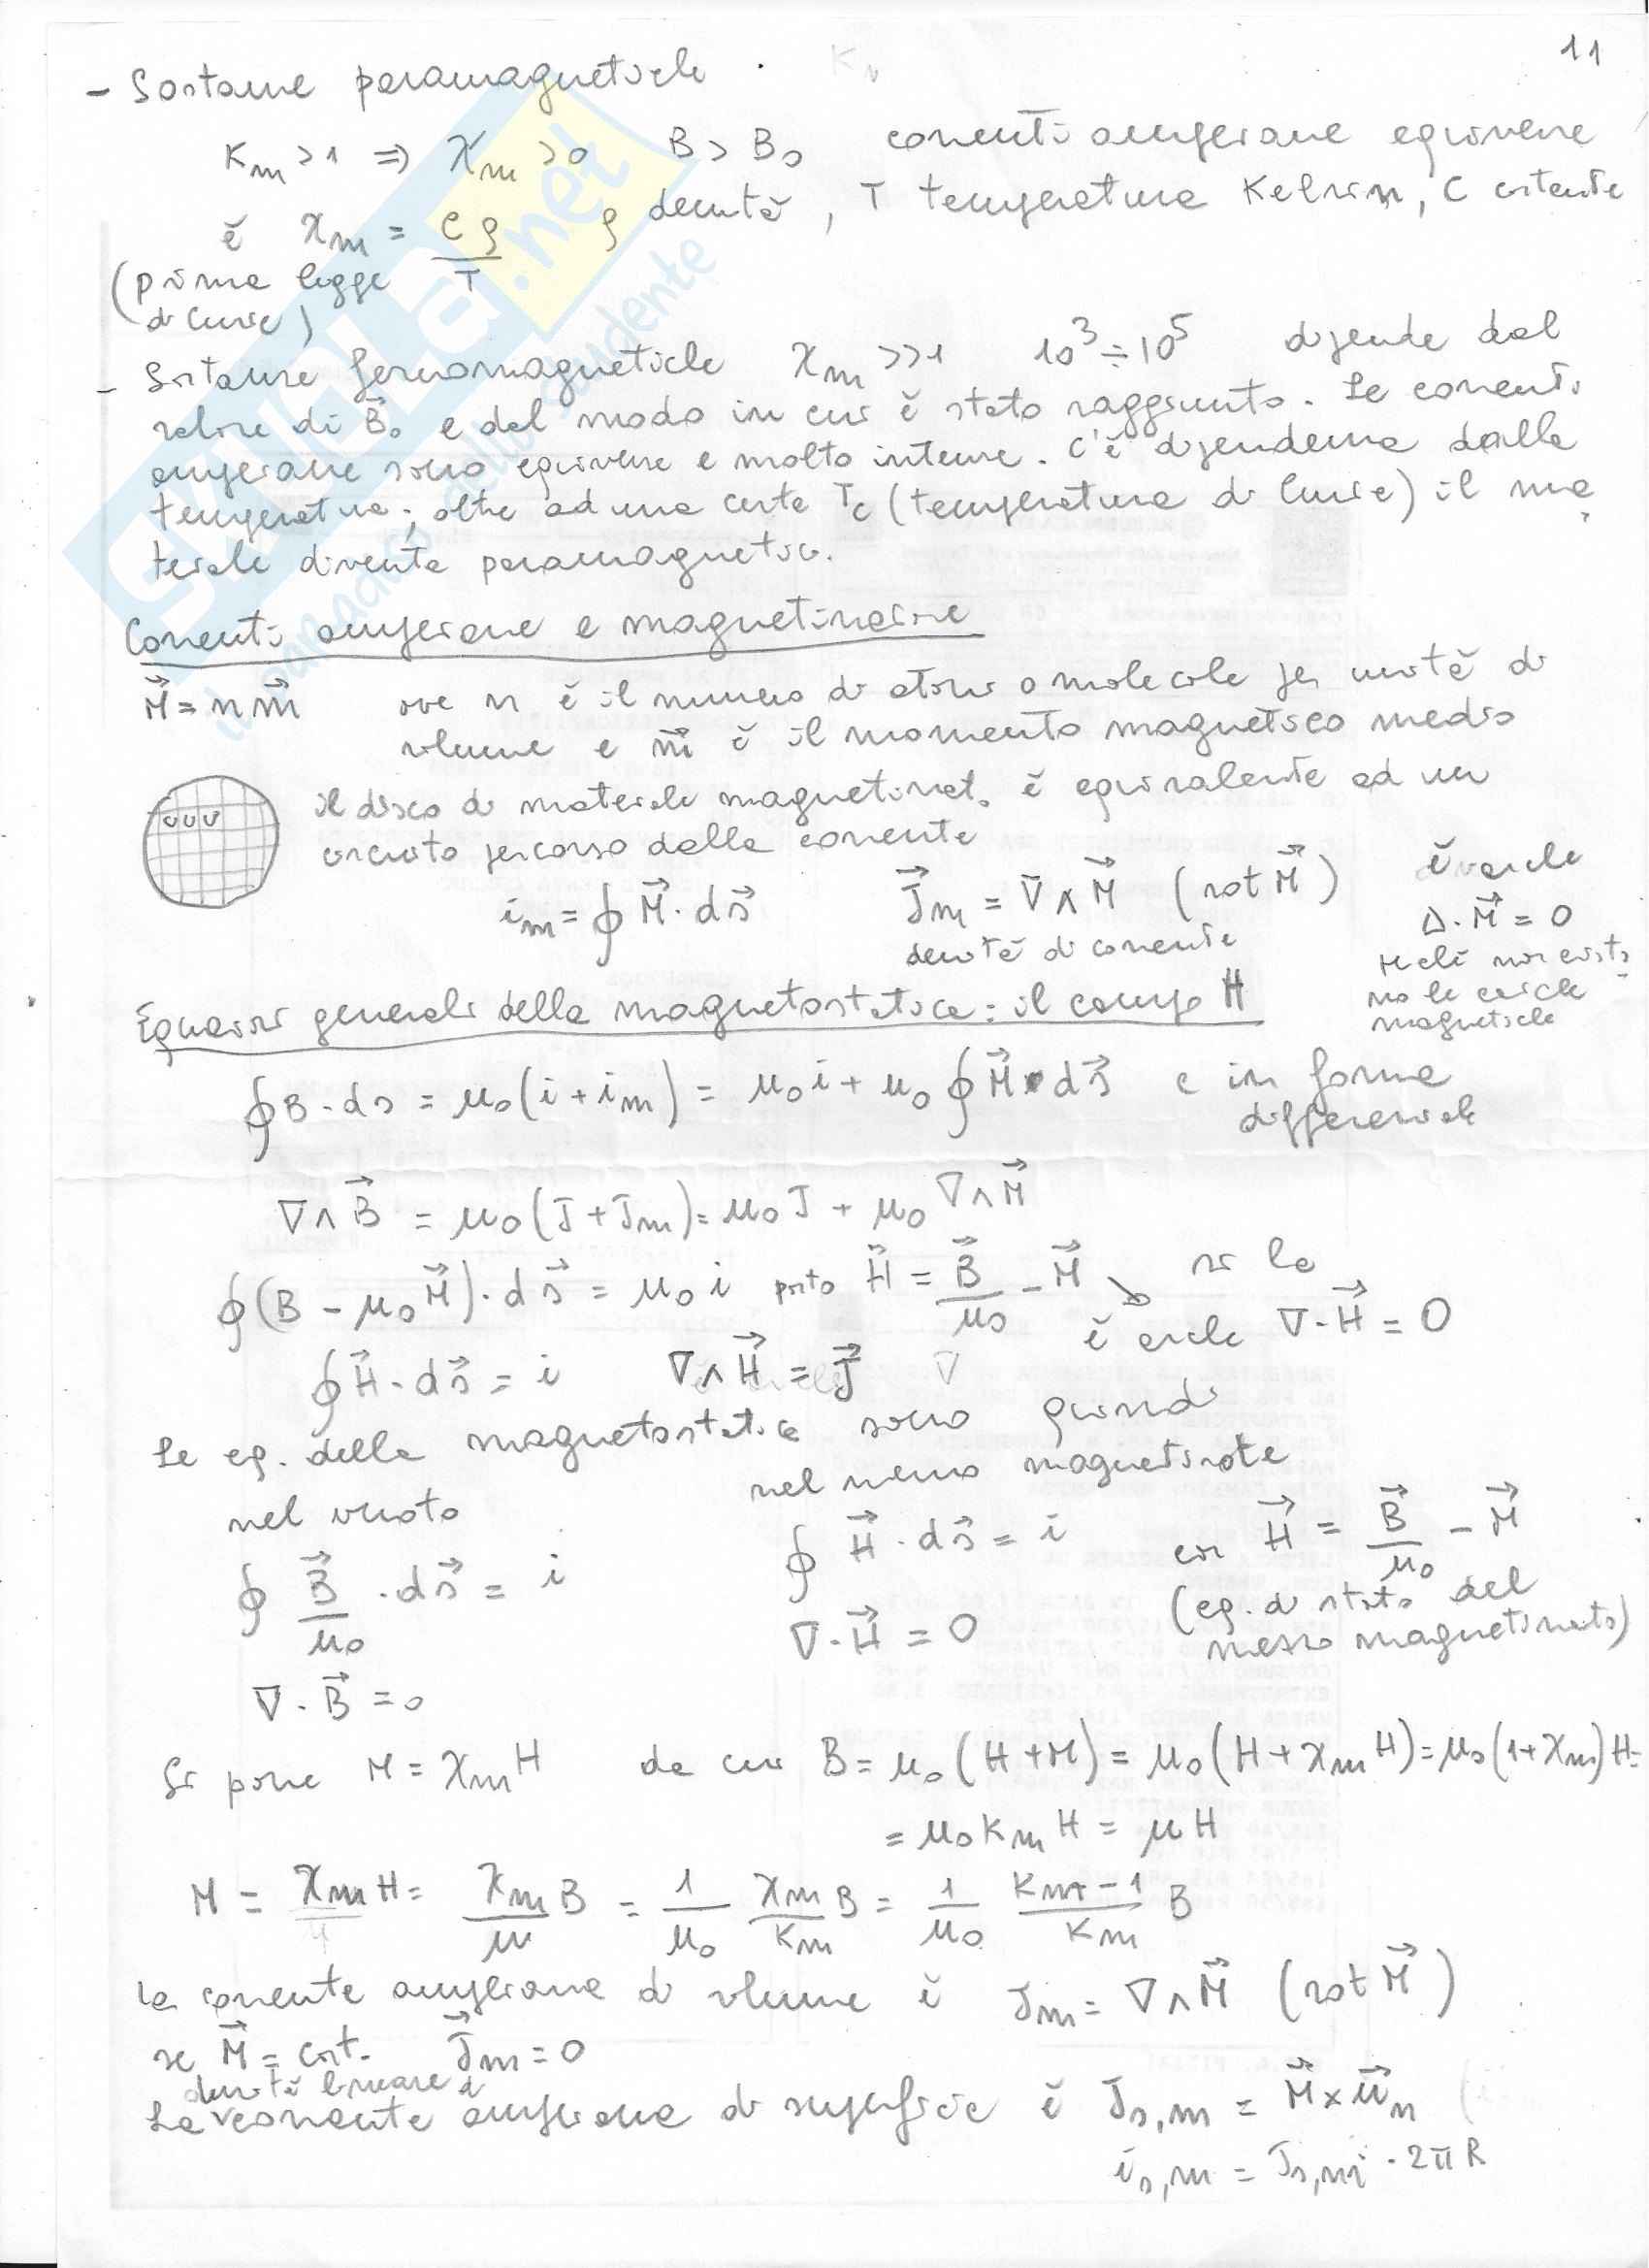 11
- Sostanze paramagnetiche
Km > 1 ⇒ χm > 0 B > B0 correnti amperiane equiverse
è χm = Cρ/T ρ densità, T temperatura Kelvin, C costante
(prima legge
di Curie)
- Sostanze ferromagnetiche χm >> 1 10³ ÷ 10⁵ dipende dal
valore di B⃗0 e dal modo in cui è stato raggiunto. Le correnti
amperiane sono equiverse e molto intense. C'è dipendenza dalla
temperatura; oltre ad una certa Tc (temperatura di Curie) il ma
teriale diventa paramagnetico.
Correnti amperiane e magnetizzazione
M⃗ = n m⃗ ove n è il numero di atomi o molecole per unità di
volume e m⃗ è il momento magnetico medio
il disco di materiale magnetizzat. è equivalente ad un
circuito percorso dalla corrente
im = ∮ M⃗ · ds⃗ J⃗m = ∇ ∧ M⃗ (rot M⃗) è anche
densità di corrente Δ · M⃗ = 0
perché non esisto
no le cariche
magnetiche
Equazioni generali della magnetostatica: il campo H
∮ B · ds = μ0 (i + im) = μ0 i + μ0 ∮ M⃗ · ds⃗ e in forma
differenziale
∇ ∧ B⃗ = μ0 (J + Jm) = μ0 J + μ0 ∇ ∧ M⃗
∮ (B - μ0 M⃗) · ds⃗ = μ0 i posto H⃗ = B⃗/μ0 - M⃗ si ha
è anche ∇ · H⃗ = 0
∮ H⃗ · ds⃗ = i ∇ ∧ H⃗ = J⃗ ∇
Le eq. della magnetostatica sono quindi
nel vuoto nel mezzo magnetizzato
∮ B⃗/μ0 · ds⃗ = i ∮ H⃗ · ds⃗ = i con H⃗ = B⃗/μ0 - M⃗
∇ · B⃗ = 0 ∇ · H⃗ = 0 (eq. di stato del
mezzo magnetizzato)
Si pone M = χm H da cui B = μ0 (H + M) = μ0 (H + χm H) = μ0 (1 + χm) H =
= μ0 Km H = μ H
M = χm H = χm/μ B = 1/μ0 χm/Km B = 1/μ0 (Km - 1)/Km B
La corrente amperiana di volume è Jm = ∇ ∧ M⃗ (rot M⃗)
se M⃗ = cost. J⃗m = 0
densità lineare di
La corrente amperiana di superficie è Js,m = M⃗ × u⃗n
is,m = Js,m · 2πR
SKUOLA.net
il compagno dello studente